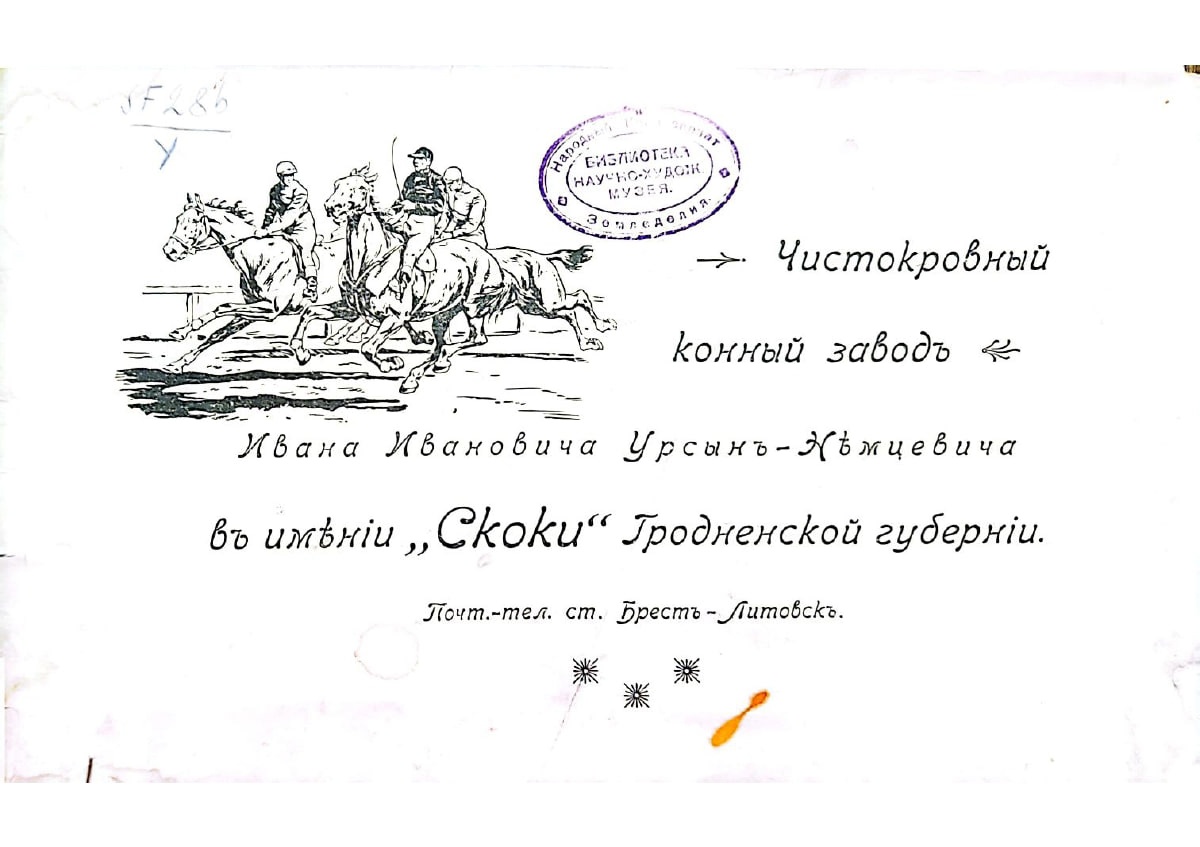 SF 286
У
Народный Комиссариат
БИБЛІОТЕКА
НАУЧНО-ХУДОЖ.
МУЗЕЯ.
Земледелия.
Чистокровный
конный заводъ
Ивана Ивановича Урсынъ-Нѣмцевича
въ имѣніи „Скоки“ Гродненской губерніи.
Почт.-тел. ст. Брестъ-Литовскъ.